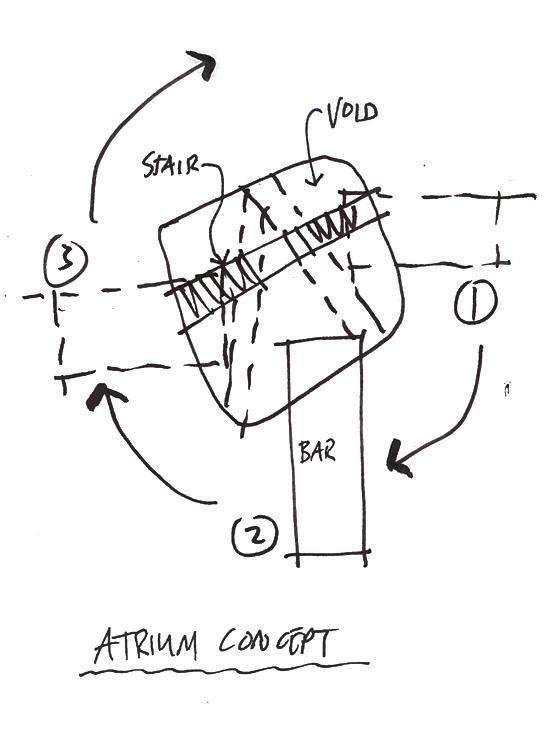 VOID
STAIR
3
1
BAR
2
ATRIUM CONCEPT